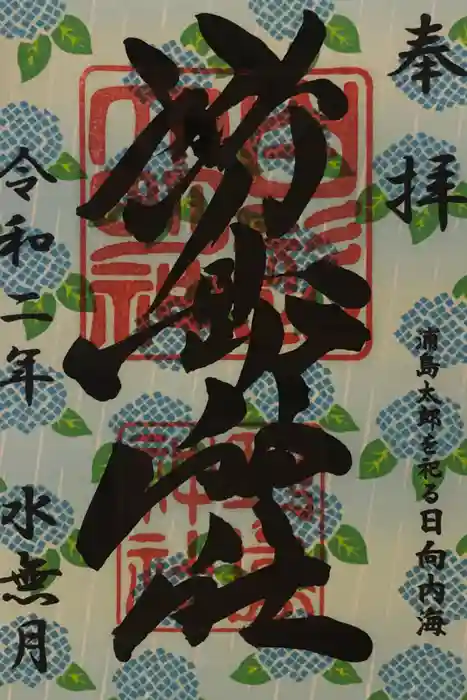 奉拝
浦島太郎を祀る日向内海
野島神社
令和二年 水無月